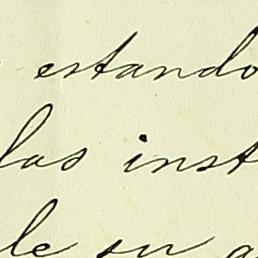 estando
las inst
le su a